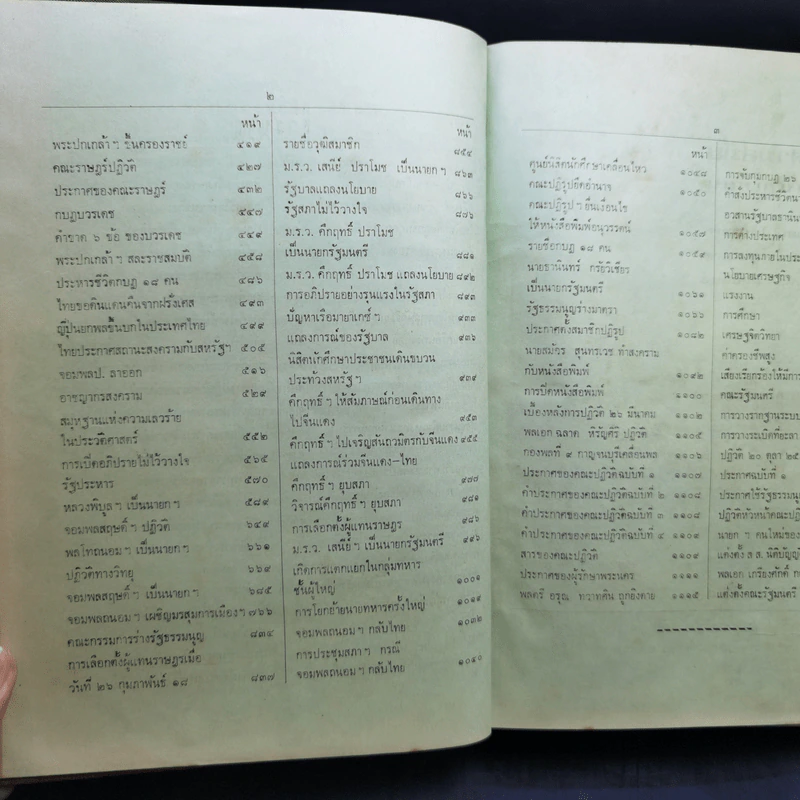 ๒
หน้า
พระปกเกล้า ฯ ขึ้นครองราชย์ ๔๑๙
คณะราษฎร์ปฏิวัติ ๔๒๗
ประกาศของคณะราษฎร์ ๔๓๒
กบฏบวรเดช ๔๔๗
คำขาด ๖ ข้อ ของบวรเดช ๔๔๙
พระปกเกล้า ฯ สละราชสมบัติ ๔๕๘
ประหารชีวิตกบฏ ๑๘ คน ๔๘๖
ไทยขอดินแดนคืนจากฝรั่งเศส ๔๙๓
ญี่ปุ่นยกพลขึ้นบกในประเทศไทย ๔๙๙
ไทยประกาศสถานะสงครามกับสหรัฐฯ ๕๐๕
จอมพลป. ลาออก ๕๑๖
อาชญากรสงคราม ๕๒๙
สมุหฐานแห่งความเลวร้าย
ในประวัติศาสตร์ ๕๕๒
การเปิดอภิปรายไม่ไว้วางใจ ๕๖๕
รัฐประหาร ๕๗๐
หลวงพิบูล ฯ เป็นนายก ฯ ๕๘๙
จอมพลสฤษดิ์ ฯ ปฏิวัติ ๖๔๙
พลโทถนอม ฯ เป็นนายก ฯ ๖๖๑
ปฏิวัติทางวิทยุ ๖๖๙
จอมพลสฤษดิ์ ฯ เป็นนายก ฯ ๖๘๕
จอมพลถนอม ฯ เผชิญมรสุมการเมือง ฯ ๗๖๖
คณะกรรมการร่างรัฐธรรมนูญ ๘๓๔
การเลือกตั้งผู้แทนราษฎรเมื่อ
วันที่ ๒๖ กุมภาพันธ์ ๑๘ ๘๓๗
หน้า
รายชื่อวุฒิสมาชิก ๘๕๔
ม.ร.ว. เสนีย์ ปราโมช เป็นนายก ฯ ๘๖๓
รัฐบาลแถลงนโยบาย ๘๖๖
รัฐสภาไม่ไว้วางใจ ๘๗๖
ม.ร.ว. คึกฤทธิ์ ปราโมช
เป็นนายกรัฐมนตรี ๘๘๑
ม.ร.ว. คึกฤทธิ์ ปราโมช แถลงนโยบาย ๘๙๒
การอภิปรายอย่างรุนแรงในรัฐสภา ๘๙๓
ปัญหาเรือมายาเกซ์ ฯ ๙๓๓
แถลงการณ์ของรัฐบาล ๙๓๖
นิสิตนักศึกษาประชาชนเดินขบวน
ประท้วงสหรัฐ ฯ ๙๓๙
คึกฤทธิ์ ฯ ให้สัมภาษณ์ก่อนเดินทาง
ไปจีนแดง ๙๕๓
คึกฤทธิ์ ฯ ไปเจริญสันถวมิตรกับจีนแดง ๙๕๕
แถลงการณ์ร่วมจีนแดง–ไทย
คึกฤทธิ์ ฯ ยุบสภา ๙๗๗
วิจารณ์คึกฤทธิ์ ฯ ยุบสภา ๙๘๑
การเลือกตั้งผู้แทนราษฎร ๙๘๖
ม.ร.ว. เสนีย์ ฯ เป็นนายกรัฐมนตรี ๙๙๖
เกิดการแตกแยกในกลุ่มทหาร
ชั้นผู้ใหญ่ ๑๐๐๑
การโยกย้ายนายทหารครั้งใหญ่ ๑๐๑๙
จอมพลถนอม ฯ กลับไทย ๑๐๓๒
การประชุมสภา ฯ กรณี
จอมพลถนอม ฯ กลับไทย ๑๐๔๐
๓
หน้า
ศูนย์นิสิตนักศึกษาเคลื่อนไหว ๑๐๔๘
คณะปฏิรูปยึดอำนาจ ๑๐๕๐
คณะปฏิรูป ฯ ยื่นเงื่อนไข
ให้หนังสือพิมพ์อนุวรรตน์ ๑๐๕๗
รายชื่อกบฏ ๑๘ คน ๑๐๕๙
นายธานินทร์ กรัยวิเชียร
เป็นนายกรัฐมนตรี ๑๐๖๑
รัฐธรรมนูญร่างมาตรา ๑๐๖๖
ประกาศตั้งสมาชิกปฏิรูป ๑๐๘๒
นายสมัคร สุนทรเวช ทำสงคราม
กับหนังสือพิมพ์ ๑๐๙๒
การปิดหนังสือพิมพ์ ๑๑๐๐
เบื้องหลังการปฏิวัติ ๒๖ มีนาคม ๑๑๐๒
พลเอก ฉลาด หิรัญศิริ ปฏิวัติ ๑๑๐๕
กองพลที่ ๙ กาญจนบุรีเคลื่อนพล ๑๑๐๖
ประกาศของคณะปฏิวัติฉบับที่ ๑ ๑๑๐๗
คำประกาศของคณะปฏิวัติฉบับที่ ๒ ๑๑๐๘
คำประกาศของคณะปฏิวัติฉบับที่ ๓ ๑๑๐๘
คำประกาศของคณะปฏิวัติฉบับที่ ๔ ๑๑๐๙
สารของคณะปฏิวัติ ๑๑๐๙
ประกาศของผู้รักษาพระนคร ๑๑๑๑
พลตรี อรุณ ทวาทศิน ถูกยิงตาย ๑๑๑๕
การจับกุมกบฏ ๒๖
คำสั่งประหารชีวิตนา
อวสานรัฐบาลธานิน
การต่างประเทศ
การลงทุนภายในประเ
นโยบายเศรษฐกิจ
แรงงาน
การศึกษา
เศรษฐจิตวิทยา
ค่าครองชีพสูง
เสียงเรียกร้องให้มีการ
คณะรัฐมนตรี
การวางรากฐานระบบ
การวางระเบิดที่ยะลา
ปฏิวัติ ๒๐ ตุลา ๒๕
ประกาศฉบับที่ ๑
ประกาศใช้รัฐธรรมนู
ปฏิวัติหัวหน้าคณะปฏิ
นายก ฯ คนใหม่ของ
แต่งตั้ง ส.ส. นิติบัญญั
พลเอก เกรียงศักดิ์ ก
แต่งตั้งคณะรัฐมนตรี